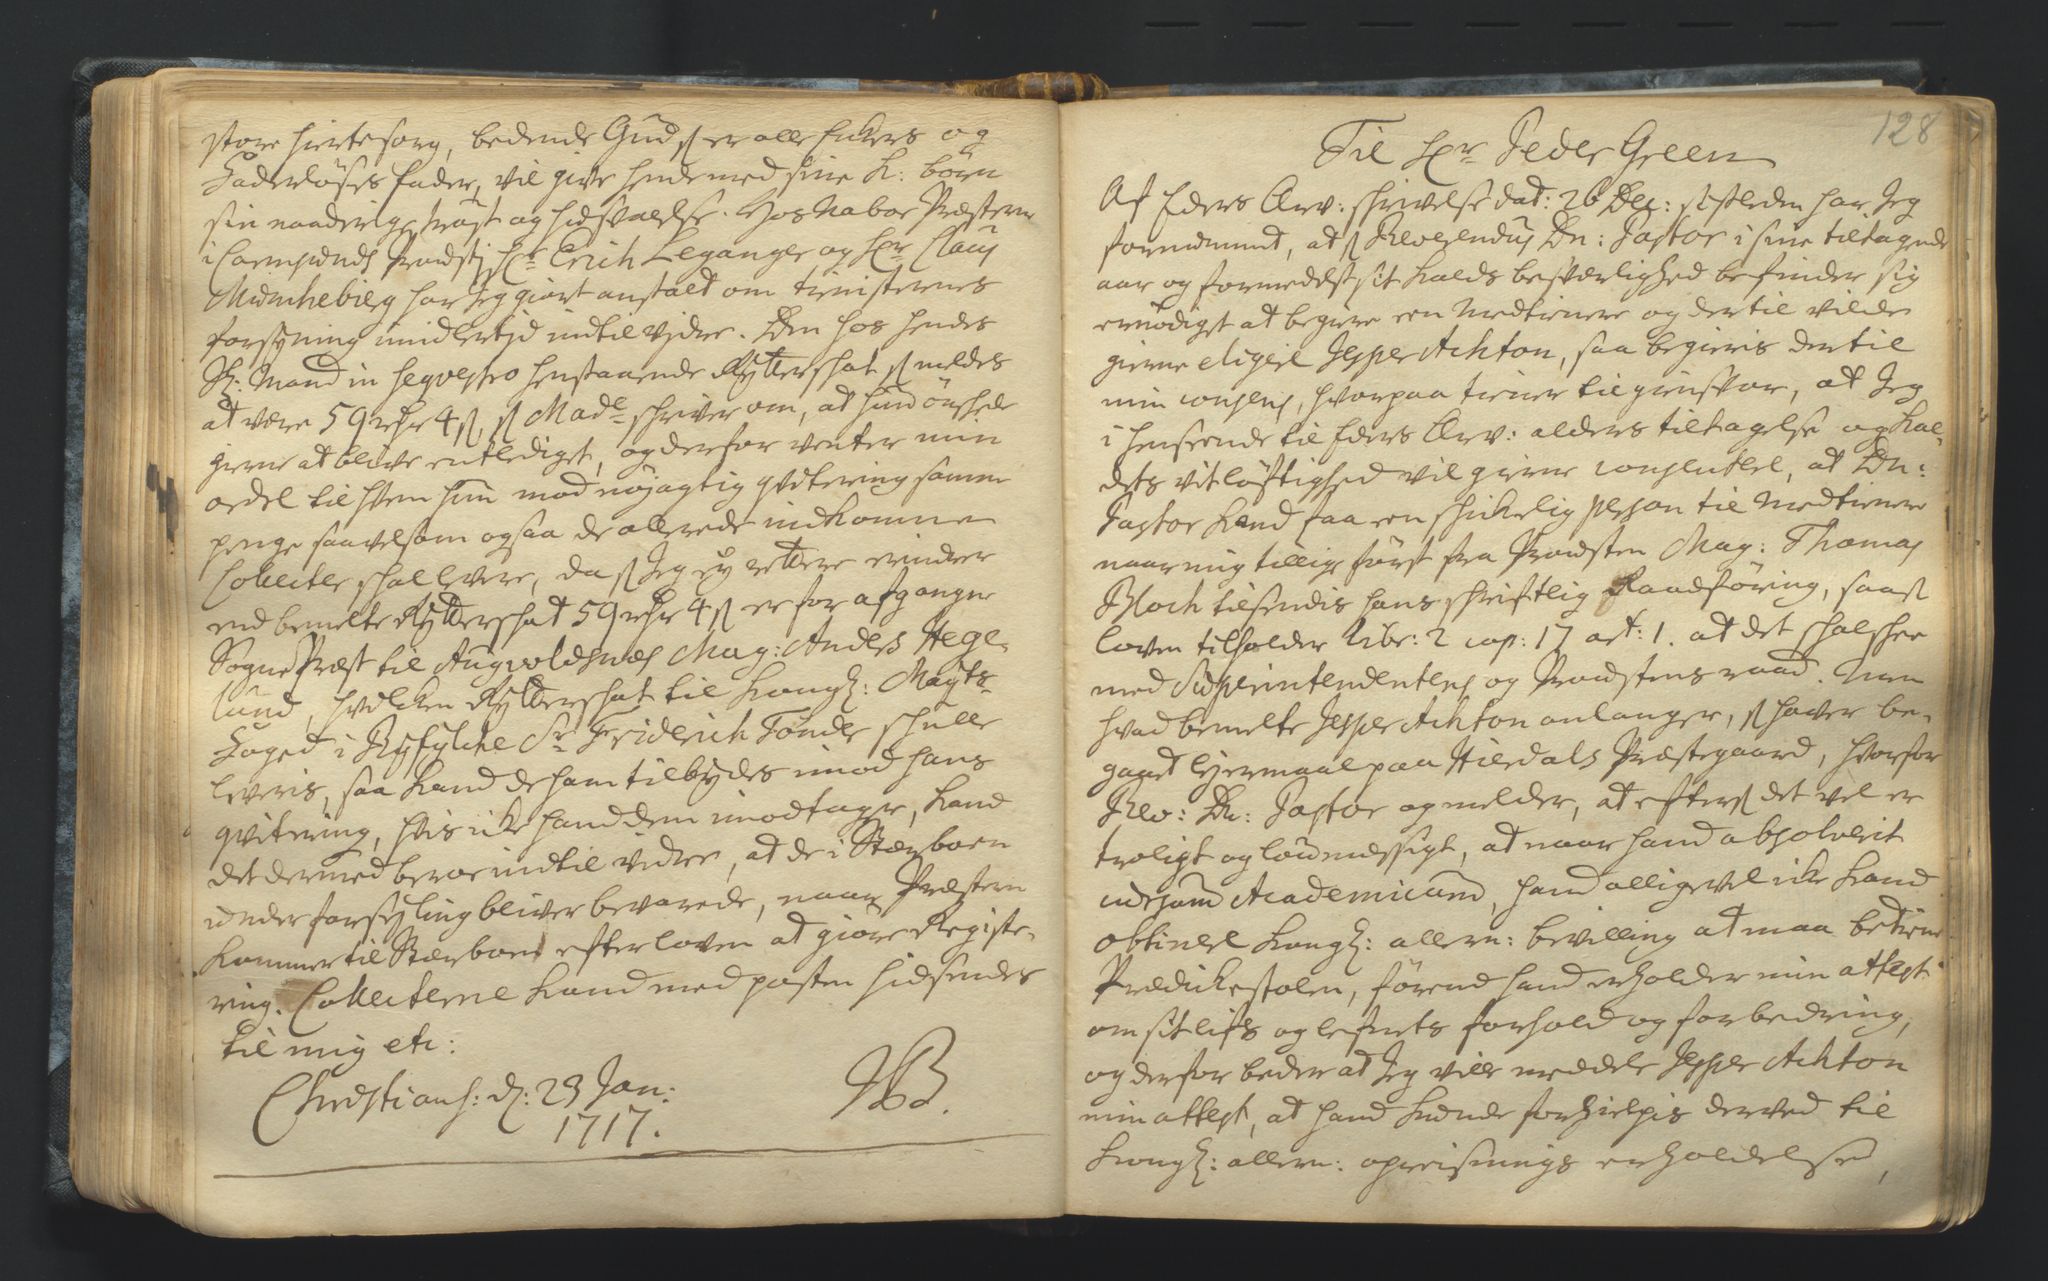 store hiertesorg, bedende Gud, som er alle Enkers og
Faderløses fader, vil give hende med sine k: börn
sin naaderige tröst og husvalelse. Hos Nabæ Præsterne
i Carmsunds Provstj Hr Erich Leganger og Hr Claus
Munchebierg har Jeg giort anstalt om tienisternes
forsyning imidlertjd indtil vjdre. Den hos hendes
Sl: Mand in seqvestro henstaaende Rytterschat, som meldes
at være 59 rdr 4 s, som Made schriver om, at hun önschede
gierne at blive entlediget, og derfor venter min
ordre til hvem hun mod nöjagtig qvitering samme
penge saavelsom ogsaa de allerede indkomne
Collecter schal levere, da som Jeg ey rettere erindrer
end bemelte Rytterschat 59 rdr 4 s er for afgangne
SognePræst til Augvoldsnæs Mag: Anders Hege-
lund, hvilken Rytterschat til Kongl: Mayts
Foged i Ryfylche Sr Friderich Tönder schulle
leveris, saa kand de ham tilbydes imod hans
qvitering, hvis icke hand dem imodtager, kand
det dermed beroe indtil vidre, at de i Stærboen
under forseyling bliver bevarede, naar Præsten
kommer til Stærboen efter loven at giöre Registe-
ring. Collecterne kand med posten hidsendes
til mig etc:
Christians: d: 23 Jan:
1717.
JB.

128
Til Hr Peder Green
Af Eders Ærv: schrivelse dat: 26 Dec: sistleden har Jeg
fornummet, at som Reverendus Dn: Pastor i sine tiltagende
aar og formedelst sit kalds besværlighed befinder sig
ernödiget at begiere een Medtienere og dertil vilde
gierne eligere Jesper Achton, saa begieris dertil
min consens, hvorpaa tiener til giensvar, at Jeg
i henseende til Eders Ærv: alders tiltagelse og Kal-
dets vitlöftighed vil gierne consentere, at Dn:
Pastor kand faa een schickelig person til Medtienere
naar mig tillige först fra Provsten Mag: Thomas
Bloch tilsendis hans schriftlig Raadföring, saasom
loven tilholder Libr: 2 cap: 17 art: 1. at det schal schee
med Superintendentens og Provstens raad. Men
hvad bemelte Jesper Achton anlanger, som haver be-
gaaet lejermaal paa Hieedals Præstegaard, hvorfor
Rev: Dn: Pastor og melder, at eftersom det vel er
troligt og loumessigt, at naar hand absolverit
cursum Academicum, hand alligevel icke kand
obtinere Kongl: allern: bevilling at maa betiene
Prædickestolen, förend hand erholder min attest
om sit lifs og lefnets forhold og forbedring,
og derfor beder at Jeg ville meddele Jesper Achton
min attest, at hand kunde forhielpis derved til
Kongl: allern: opreisnings erholdelse,